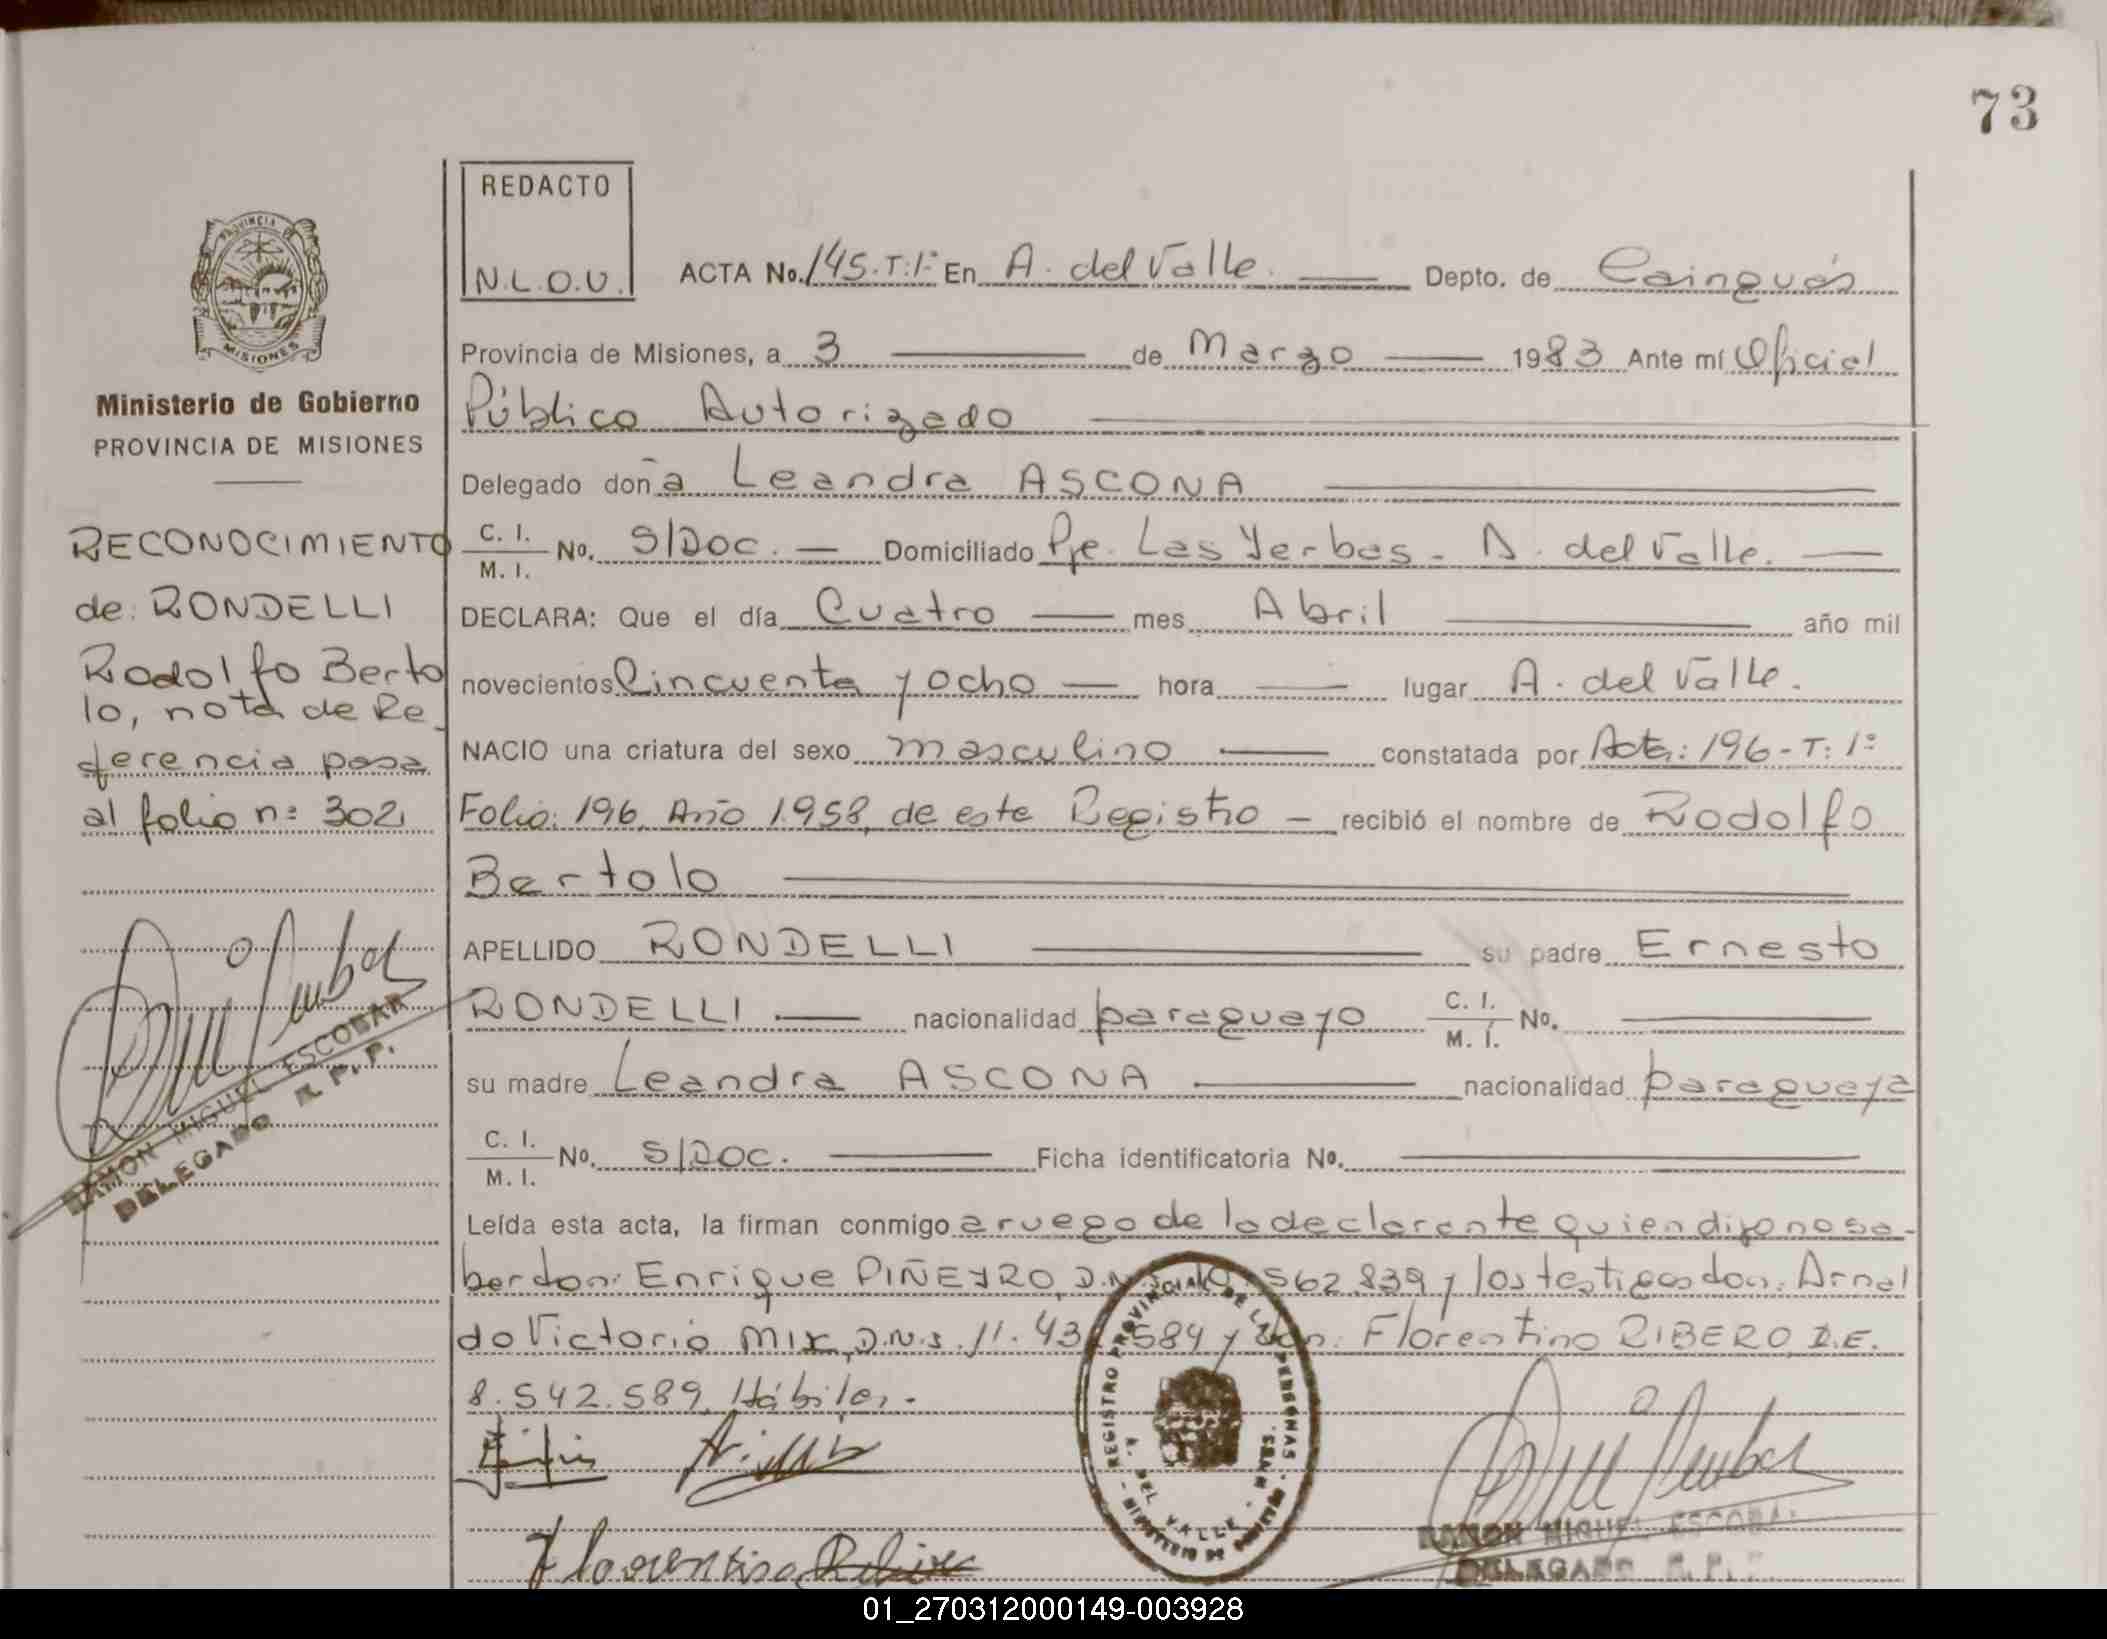 73
REDACTO
N.L.O.U.
ACTA No. 145.T:1º En A. del Valle. Depto. de Cainguás
Provincia de Misiones, a 3 de Marzo 1983 Ante mí Oficial
Público Autorizado
Delegado doña Leandra ASCONA
C. I.
M. I. No. S/Doc. Domiciliado Pje. Las Yerbas - A. del Valle.
DECLARA: Que el día Cuatro mes Abril año mil
novecientos Cincuenta y ocho hora lugar A. del Valle.
NACIO una criatura del sexo masculino constatada por Acta: 196-T: 1º
Folio: 196, Año 1.958, de este Registro recibió el nombre de Rodolfo
Bertolo
APELLIDO RONDELLI su padre Ernesto
RONDELLI nacionalidad paraguayo C. I.
M. I. No.
su madre Leandra ASCONA nacionalidad paraguaya
C. I.
M. I. No. S/Doc. Ficha identificatoria No.
Leída esta acta, la firman conmigo a ruego de la declarante quien dijo no sa-
ber don: Enrique PIÑEYRO, 562.839 y los testigos don: Arnal
do Victorio MIX, D.N.I. 11.43 584 y don: Florentino RIBERO, D.E.
8.542.589, Hábiles.-
Florentino
REGISTRO PROVINCIAL DE LAS PERSONAS
A. DEL VALLE - MNES.
MINISTERIO DE GOBIERNO
RAMON MIGUEL ESCOBAR
DELEGADO R. P.
PROVINCIA DE
MISIONES
Ministerio de Gobierno
PROVINCIA DE MISIONES
RECONOCIMIENTO
de: RONDELLI
Rodolfo Berto
lo, nota de Re-
ferencia pasa
al folio nº 302,
RAMON MIGUEL ESCOBAR
DELEGADO R. P. P.
01_270312000149-003928